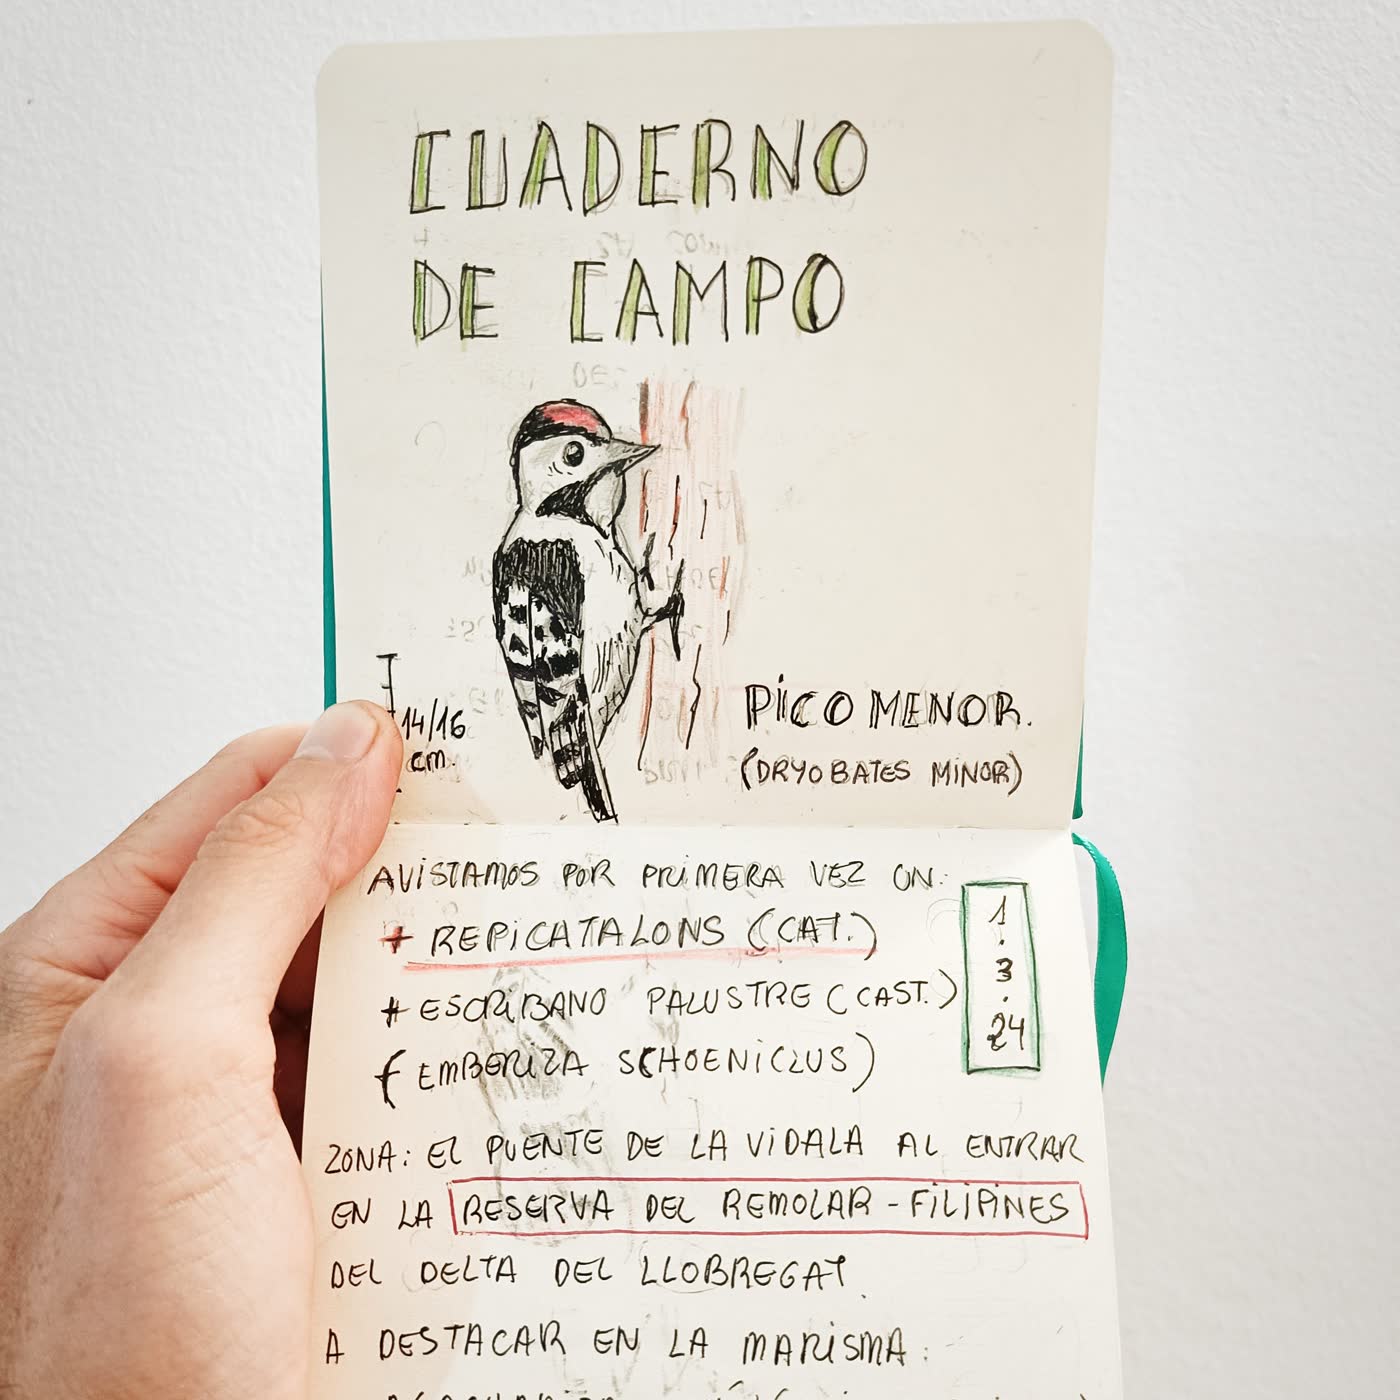 CUADERNO
DE CAMPO
14/16
cm.
PICO MENOR.
(DRYOBATES MINOR)
AVISTAMOS POR PRIMERA VEZ UN:
+ REPICATALONS (CAT.)
+ ESCRIBANO PALUSTRE (CAST.)
(EMBERIZA SCHOENICLUS)
1.
3.
24
ZONA: EL PUENTE DE LA VIDALA AL ENTRAR
EN LA RESERVA DEL REMOLAR - FILIPINES
DEL DELTA DEL LLOBREGAT.
A DESTACAR EN LA MARISMA: